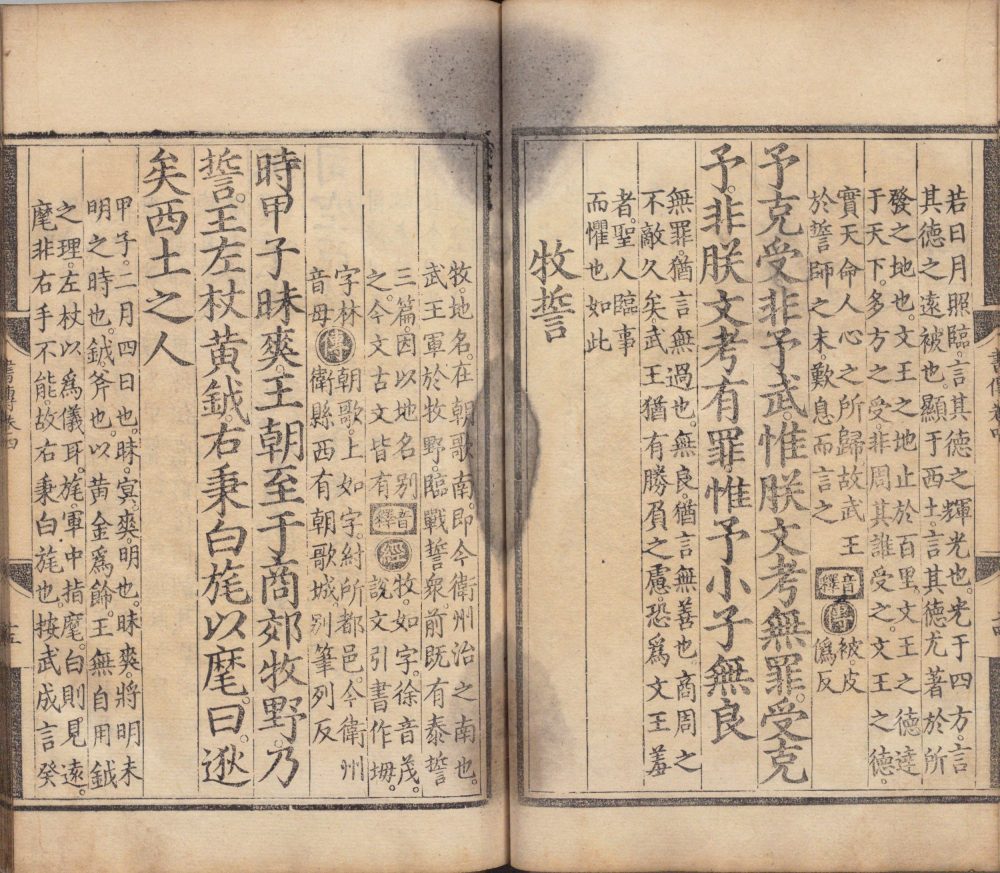 若日月照臨。言其德之輝光也。光于四方。言
其德之遠被也。顯于西土。言其德尤著於所
發之地也。文王之地。止於百里。文王之德。達
于天下。多方之受。非周其誰受之。文王之德。
實天命人心之所歸。故武王
於誓師之末。歎息而言之
音釋
傳
被。皮
僞反
予克受。非予武。惟朕文考無罪。受克
予。非朕文考有罪。惟予小子無良
無罪。猶言無過也。無良。猶言無善也。商周之
不敵久矣。武王猶有勝負之慮。恐爲文王羞
者。聖人臨事
而懼也如此
牧誓
牧。地名。在朝歌南。即今衛州治之南也。
武王軍於牧野。臨戰誓衆。前既有泰誓
三篇。因以地名別
之。今文古文皆有
音釋
經
牧。如字。徐音茂。
說文引書作坶。
字林
音母
傳
朝歌。上如字。紂所都邑。今衛州
衛縣西有朝歌城。別筆列反
時甲子昧爽。王朝至于商郊牧野。乃
誓。王左杖黃鉞。右秉白旄以麾。曰。逖
矣西土之人
甲子。二月四日也。昧。冥。爽。明也。昧爽。將明未
明之時也。鉞。斧也。以黃金爲飾。王無自用鉞
之理。左杖以爲儀耳。旄。軍中指麾。白則見遠。
麾非右手不能。故右秉白旄也。按武成言癸
書傳卷四